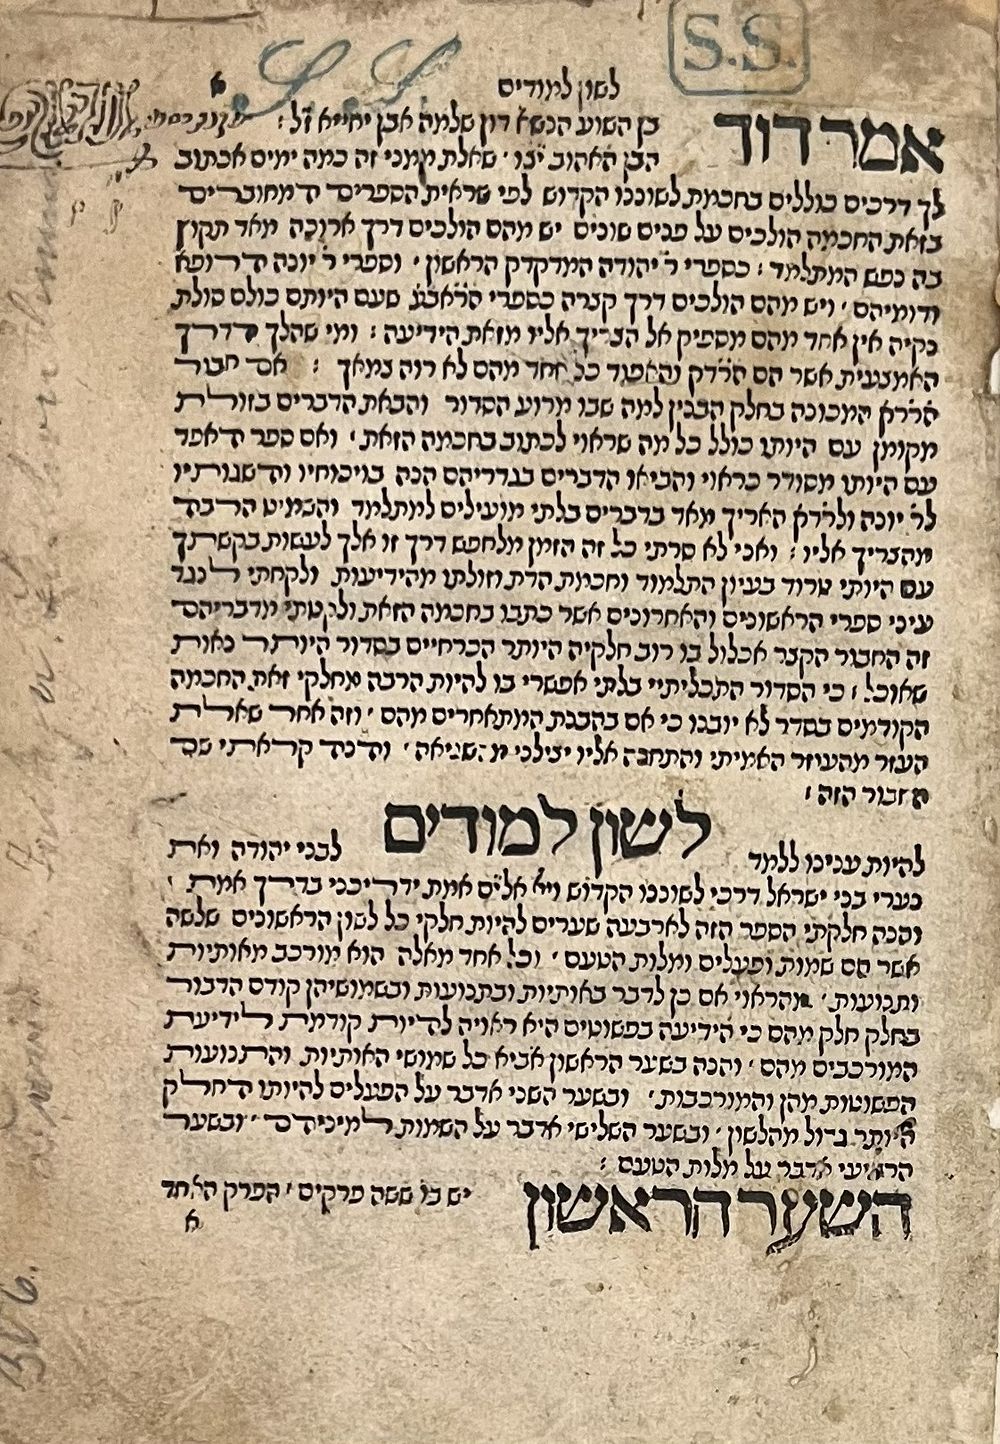 S.S.
לשון למודים
אמר דוד בן השוע הנשא דון שלמה אבן יחייא ז"ל :
הבן האהוב יצו ' שאלת ממני זה כמה ימים אכתוב
לך דרכים כוללים בחכמת לשוננו הקדוש לפי שראית הספרים המחוברים
בזאת החכמה הולכים על פנים שונים יש מהם הולכים דרך ארוכה מאד תקוץ
בה נפש המתלמד : כספרי ר' יהודה המדקדק הראשון ' וספרי ר' יונה הרופא
ודומיהם ' ויש מהם הולכים דרך קצרה כספרי הראבע שעם היותם כולם סולת
נקיה אין אחד מהם מספיק אל הצריך אליו מזאת הידיעה : ומי שהלך הדרך
האמצעית אשר הם הרדק והאפוד כל אחד מהם לא רוה צמאך : אם חבור
הרדק המכונה בחלק הבנין למה שבו מרוע הסדור והבאת הדברים בזולת
מקומן עם היותו כולל כל מה שראוי לכתוב בחכמה הזאת ' ואם ספר האפד
עם היותו מסודר כראוי והביאו הדברים בגדריהם הנה בויכוחיו והשגותיו
לר' יונה ולרדק האריך מאד בדברים בלתי מועילים למתלמד והשמיט הרבה
מהצריך אליו : ואני לא סרתי כל זה הזמן מלחפש דרך זו אלך לעשות בקשתך
עם היותי טרוד בעיון התלמוד וחכמת הדת וזולתו מהידיעות ולקחתי לנגד
עיני ספרי הראשונים והאחרונים אשר כתבו בחכמה הזאת ולקטתי מדבריהם
זה החבור הקצר אכלול בו רוב חלקיה היותר הכרחיים בסדור היותר נאות
שאוכל : כי הסדור התכליתיי בלתי אפשרי בו להיות הרבה מחלקי זאת החכמה
הקודמים בסדר לא יובנו כי אם בהבנת המתאחרים מהם ' וזה אחר שאלת
העזר מהעוזר האמיתי והתחבה אליו יצילני מהשגיאה ' והנה קראתי שם
החבור הזה :
לשון למודים
להיות עניננו ללמד לבני יהודה ואת
נערי בני ישראל דרכי לשוננו הקדוש ויי' אלים אמת ידריכני בדרך אמת '
והנה חלקתי הספר הזה לארבעה שערים להיות חלקי כל לשון הראשונים שלשה
אשר הם שמות ופעלים ומלות הטעם ' וכל אחד מאלה הוא מורכב מאותיות
ותנועות ' מהראוי אם כן לדבר באותיות ובתנועות ובשמושיהן קודם הדבור
בחלק חלק מהם כי הידיעה בפשוטים היא ראויה להיות קודמת לידיעת
המורכבים מהם ' והנה בשער הראשון אביא כל שמושי האותיות והתנועות
הפשוטות מהן והמורכבות ' ובשער השני אדבר על הפעלים להיותו החלק
היותר גדול מהלשון ' ובשער השלישי אדבר על השמות למיניהם ' ובשער
הרביעי אדבר על מלות הטעם :
השער הראשון יש בו ששה פרקים ' הפרק האחד
א